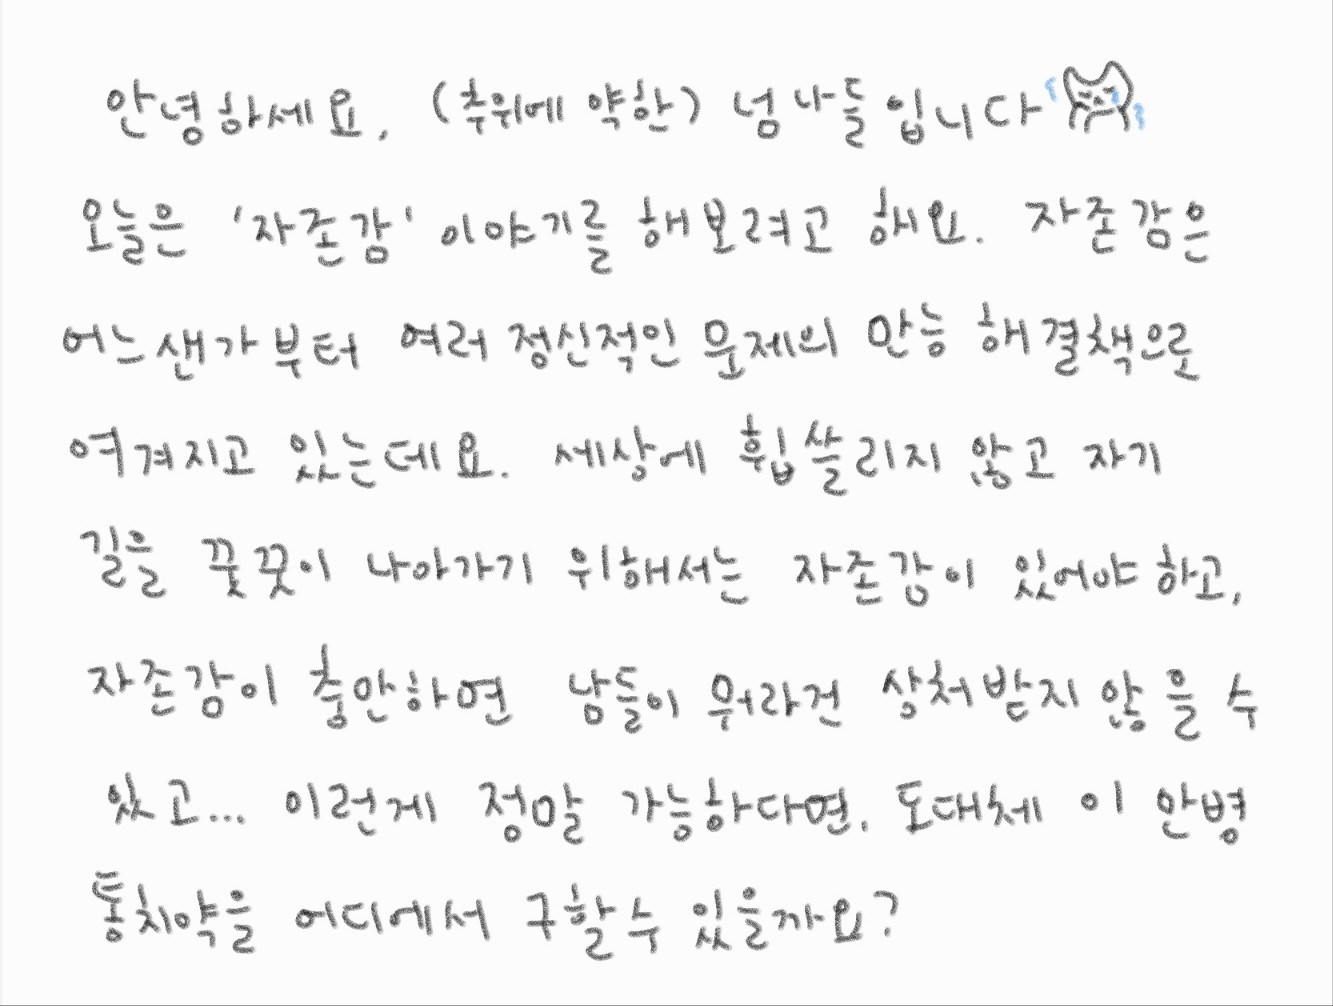 안녕하세요, (추위에 약한) 넘나들입니다
오늘은 '자존감' 이야기를 해보려고 해요. 자존감은
어느샌가부터 여러 정신적인 문제의 만능 해결책으로
여겨지고 있는데요. 세상에 휩쓸리지 않고 자기
길을 꿋꿋이 나아가기 위해서는 자존감이 있어야 하고,
자존감이 충만하면 남들이 뭐라건 상처받지 않을 수
있고... 이런게 정말 가능하다면, 도대체 이 만병
통치약을 어디에서 구할 수 있을까요?